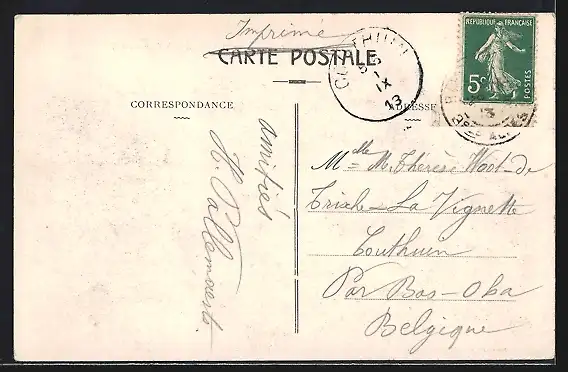 Imprimé
CARTE POSTALE
CORRESPONDANCE
ADRESSE
RÉPUBLIQUE FRANÇAISE
5c
POSTES
COUTHUIN
IX
13
amitiés
M. Thérèse
La Vignette
Couthuin
Par Bas-Oha
Belgique